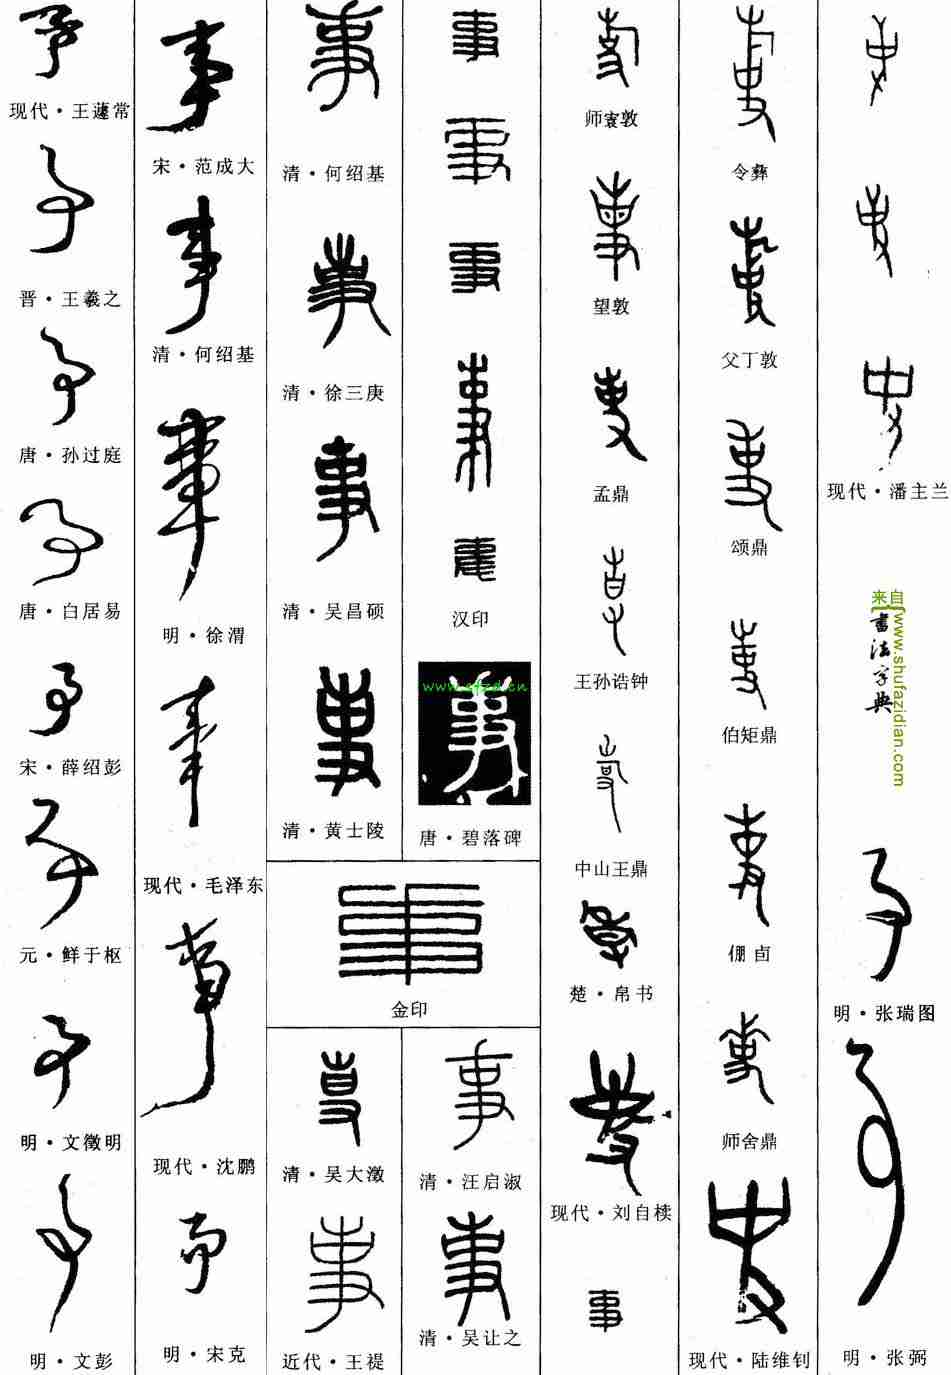 现代·王蘧常
晋·王羲之
唐·孙过庭
唐·白居易
宋·薛绍彭
元·鲜于枢
明·文徵明
明·文彭
宋·范成大
清·何绍基
明·徐渭
现代·毛泽东
现代·沈鹏
明·宋克
清·何绍基
清·徐三庚
清·吴昌硕
清·黄士陵
金印
清·吴大澂
近代·王禔
汉印
www.sfzd.cn
唐·碧落碑
清·汪启淑
清·吴让之
师寰敦
望敦
孟鼎
王孙诰钟
中山王鼎
楚·帛书
现代·刘自椟
事
令彝
父丁敦
颂鼎
伯矩鼎
倗卣
师舍鼎
现代·陆维钊
现代·潘主兰
来自
书法字典
www.shufazidian.com
明·张瑞图
明·张弼